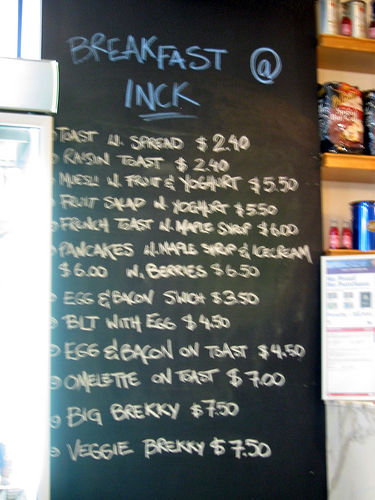 BREAKFAST @
INCK
TOAST W. SPREAD $2.40
RAISIN TOAST $2.40
MUESLI W. FRUIT & YOGHURT $5.50
FRUIT SALAD W. YOGHURT $5.50
FRENCH TOAST W. MAPLE SYRUP $6.00
PANCAKES W. MAPLE SYRUP & ICECREAM
$6.00 W. BERRIES $6.50
EGG & BACON SWICH $3.50
BLT WITH EGG $4.50
EGG & BACON ON TOAST $4.50
OMELETTE ON TOAST $7.00
BIG BREKKY $7.50
VEGGIE BREKKY $7.50